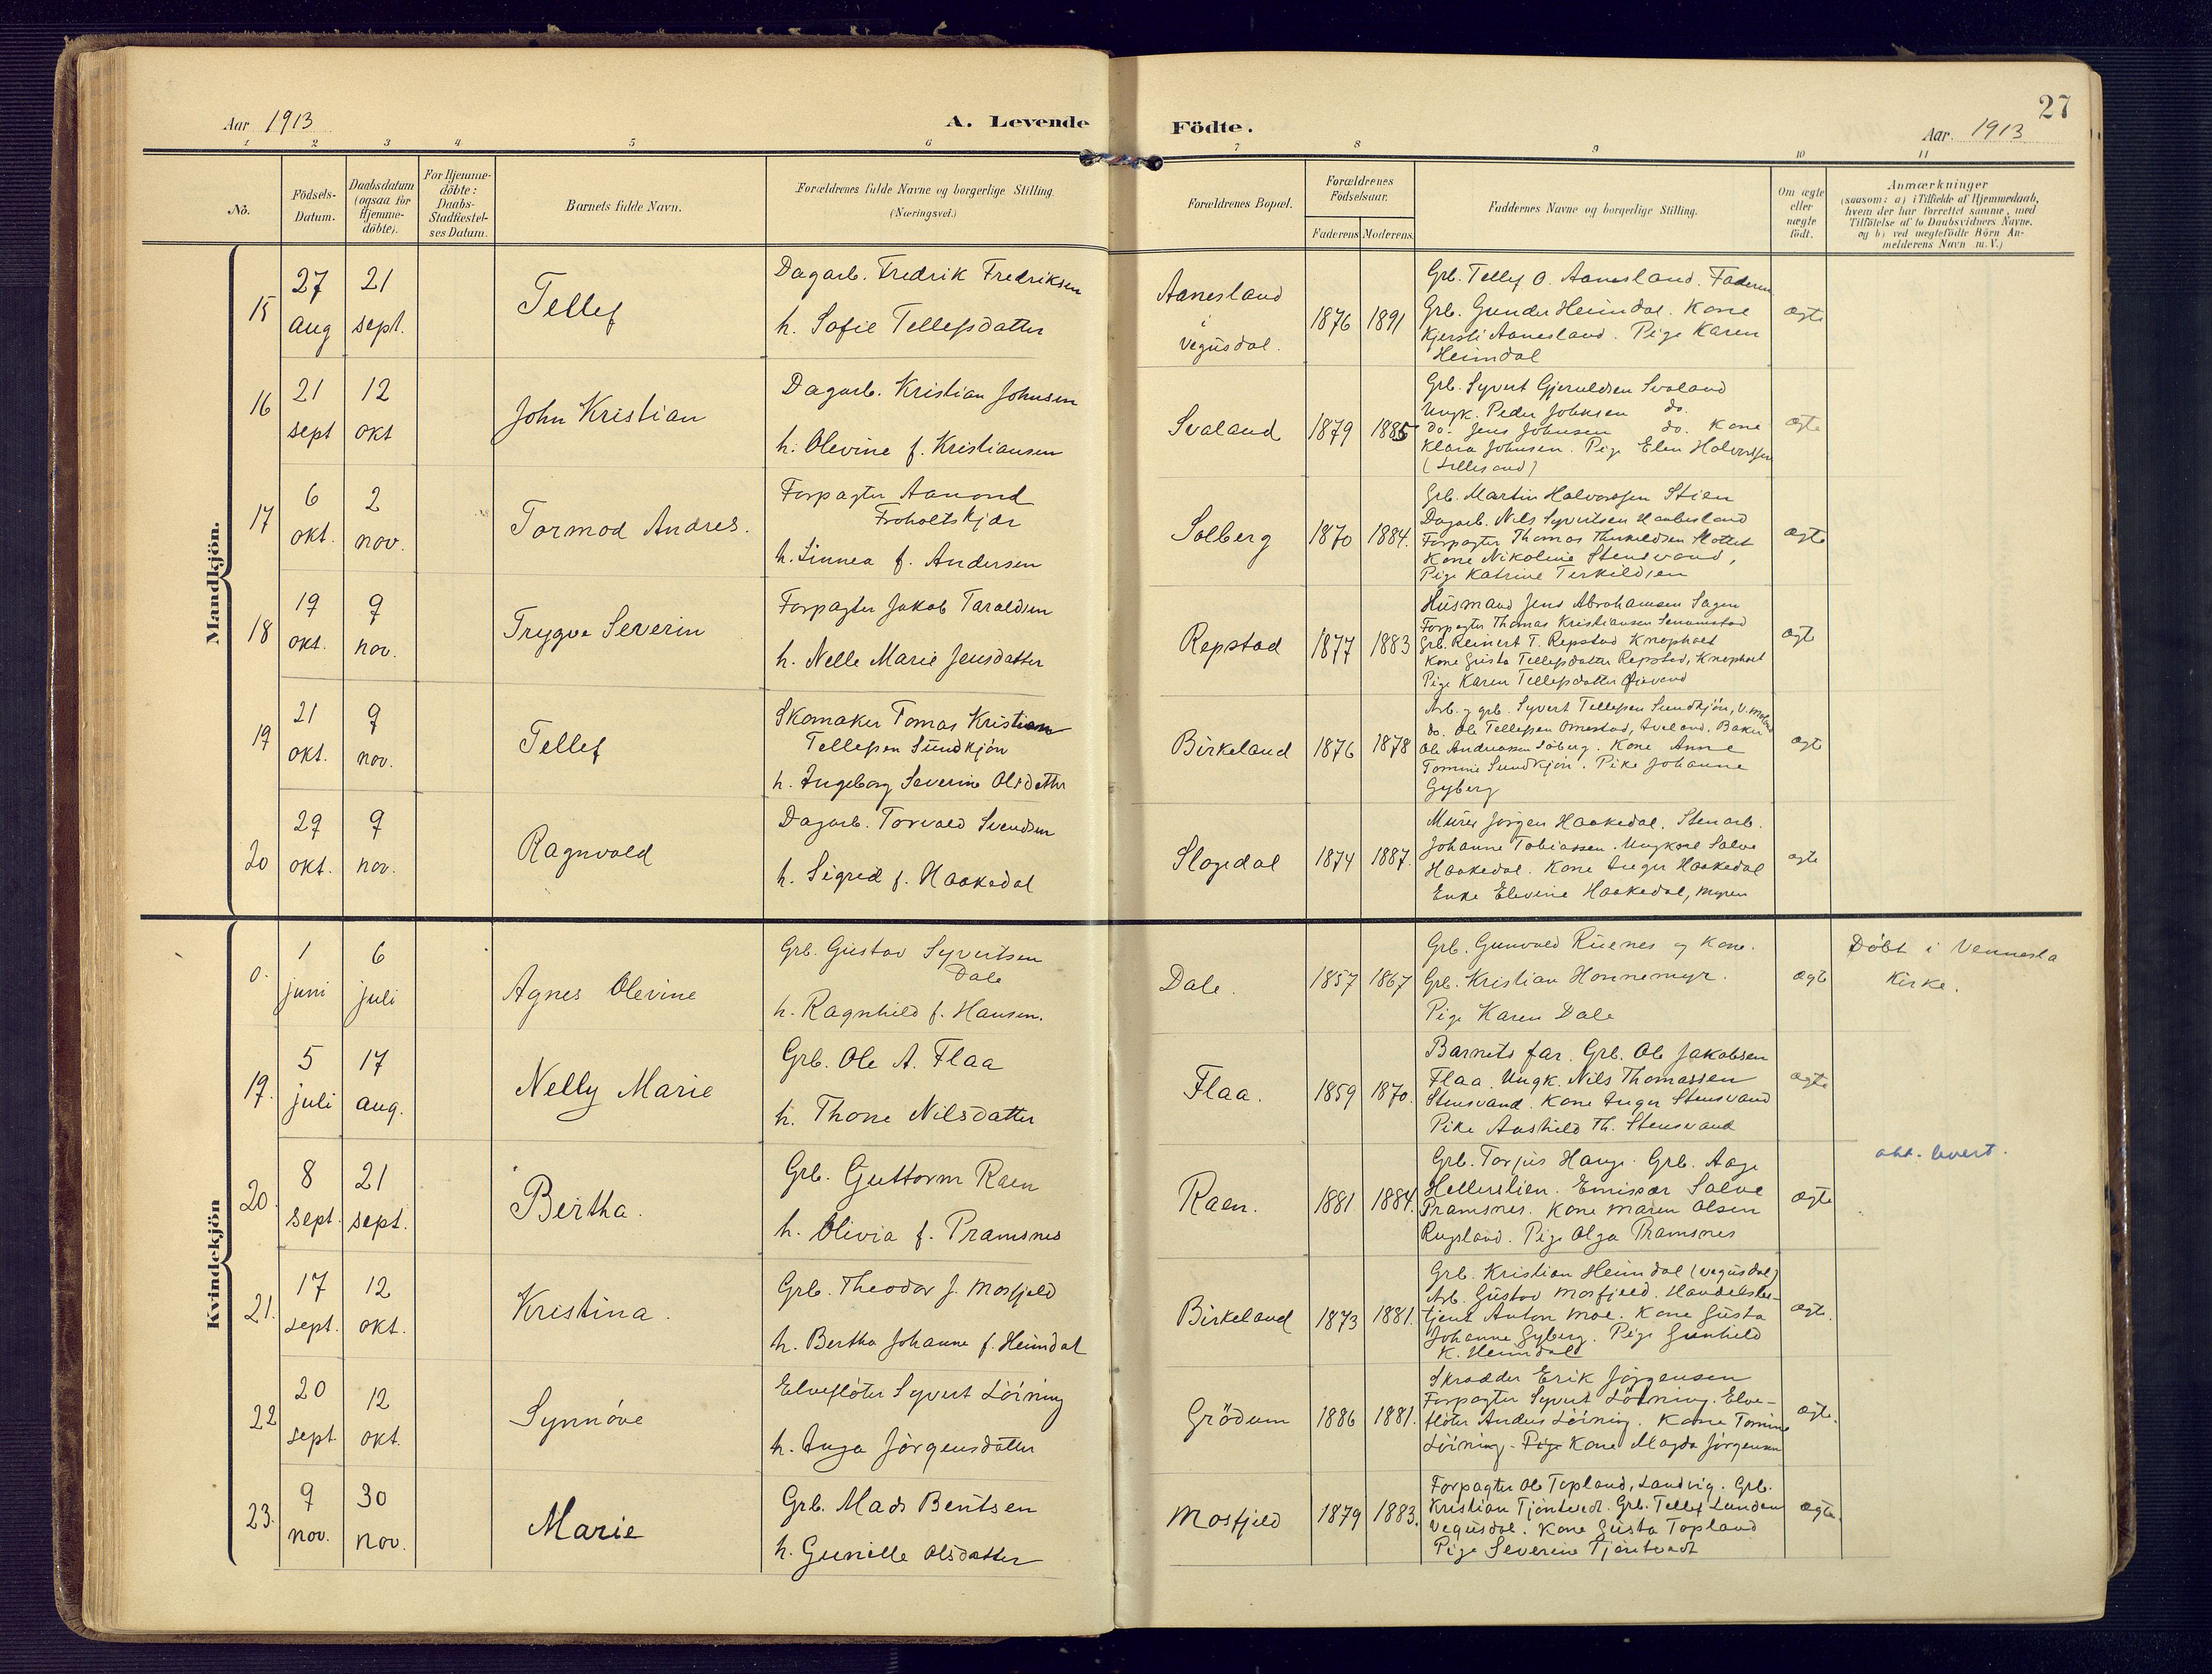 27
Aar 1913
A. Levende Födte.
Aar. 1913
1 2 3 4 5 6 7 8 9 10 11
No.
Födsels-
Datum.
Daabsdatum
(ogsaa for
Hjemme-
döbte).
For Hjemme-
döbte:
Daabs-
Stadfæstel-
ses Datum.
Barnets fulde Navn.
Forældrenes fulde Navne og borgerlige Stilling.
(Næringsvei.)
Forældrenes Bopæl.
Forældrenes
Födselsaar.
Faderens Moderens.
Faddernes Navne og borgerlige Stilling.
Om ægte
eller
uægte
födt.
Anmærkninger
(saasom: a) i Tilfælde af Hjemmedaab,
hvem der har forrettet samme, med
Tilföielse af to Daabsvidners Navne.
og b) ved uægtefödte Börn An-
melderens Navn m. V.)
Mandkjön.
15
27
aug
21
sept.
Tellef
Dagarb. Fredrik Fredriksen
h. Sofie Tellefsdatter
Aanesland
i
Vegusdal.
1876 1891
Grb. Tellef O. Aanesland. Faderen
Grb. Gunder Heimdal. Kone
Kjersti Aanesland. Pige Karen
Heimdal
ægte
16
21
sept
12
okt
John Kristian
Dagarb. Kristian Johnsen
h. Olevine f. Kristiansen
Svaland
1879 1885
Grb. Syvert Gjeruldsen Svaland
Ungk. Peder Johnsen do.
do. Jens Johnsen do. Kone
Klara Johnsen. Pige Elen Halvorsen
(Lillesand)
ægte
17
6
okt.
2
nov.
Tormod Andres.
Forpagter Aamond
Froholtskjær
h. Linnea f. Andersen
Solberg
1870 1884.
Grb. Martin Halvorsen Stien
Dagarb. Nils Syvertsen
Forpagter Thomas Slottet
Kone Nikoline Stensvand,
Pige Katrine Terkildsen
ægte
18
19
okt.
9
nov.
Trygve Severin
Forpagter Jakob Taraldsen
h. Nelle Marie Jensdatter
Repstad
1877 1883
Husmand Jens Abrahamsen Sagen
Forpagter Thomas Kristiansen Senumstad
Grb. Reinert T. Repstad Knapholt
Kone Gusta Tellefsdatter Repstad, Knapholt
Pige Karen Tellefsdatter
ægte
19
21
okt.
9
nov.
Tellef
Skomaker Tomas Kristian
Tellefsen Sundkjön
h. Ingeborg Severine Olsdatter
Birkeland
1876 1878
Arb. og grb. Syvert Tellefsen Sundkjön, V. Moland
do. Ole Tellefsen Omestad, Iveland. Baker
Ole Andreassen Söberg. Kone Anne
Tomine Sundkjön. Pike Johanne
Gyberg
ægte
20
29
okt.
9
nov.
Ragnvald
Dagarb. Torvald Svendsen
h. Sigrid f. Haakedal
Slogedal
1874 1887.
Murer Jörgen Haakedal. Stenarb.
Johanne Tobiassen. Ungkarl Salve
Haakedal. Kone Inger Haakedal
Enke Elevine Haakedal, Myren
ægte
Kvindekjön
0.
1
juni
6
juli
Agnes Olevine
Grb. Gustav Syvertsen
Dale
h. Ragnhild f. Hansen.
Dale.
1857 1867
Grb. Gunvald Ruenes og Kone.
Grb. Kristian Honnemyr.
Pige Karen Dale
ægte
Döbt i Vennesla
Kirke.
19.
5
juli
17
aug.
Nelly Marie
Grb. Ole A. Flaa
h. Thone Nilsdatter
Flaa.
1859 1870.
Barnets far. Grb. Ole Jakobsen
Flaa. Ungk. Nils Thomassen
Stensvand. Kone Inger Stensvand
Pike Aashild Th. Stensvand
ægte
20.
8
sept.
21
sept.
Bertha.
Grb. Guttorm Raen
h. Olivia f. Pramsnes
Raen.
1881 1884.
Grb. Torjus Hauge. Grb. Aage
Hellerslien. Emissær Salve
Pramsnes. Kone Maren Olsen
Rugsland. Pige Olga Pramsnes
ægte
att. levert.
21.
17
sept.
12
okt.
Kristina.
Grb. Theodor J. Mosfjeld
h. Bertha Johanne f. Heimdal
Birkeland
1873 1881.
Grb. Kristian Heimdal (Vegusdal)
Arb. Gustav Mosfjeld. Handelsbe-
tjent Anton Moe. Kone Gusta
Johanne Gyberg. Pige Gunhild
K. Heimdal
ægte.
22
20
sept
12
okt.
Synnöve
Elveflöter Syvert Löining
h. Inga Jörgensdatter
Grödum
1886 1881.
Skrædder Erik Jörgensen
Forpagter Syvert Löining. Elve-
flöter Anders Löining. Kone Tomine
Löining. Pige Kone Magda Jörgensen
ægte.
23.
9
nov.
30
nov.
Marie
Grb. Mads Bentsen
h. Gunille Olsdatter
Mosfjeld
1879 1883.
Forpagter Ole Topland, Landvig. Grb.
Kristian Tjöntvedt. Grb. Tellef Lunden
Vegusdal. Kone Gusta Topland
Pige Severine Tjöntvedt
ægte.